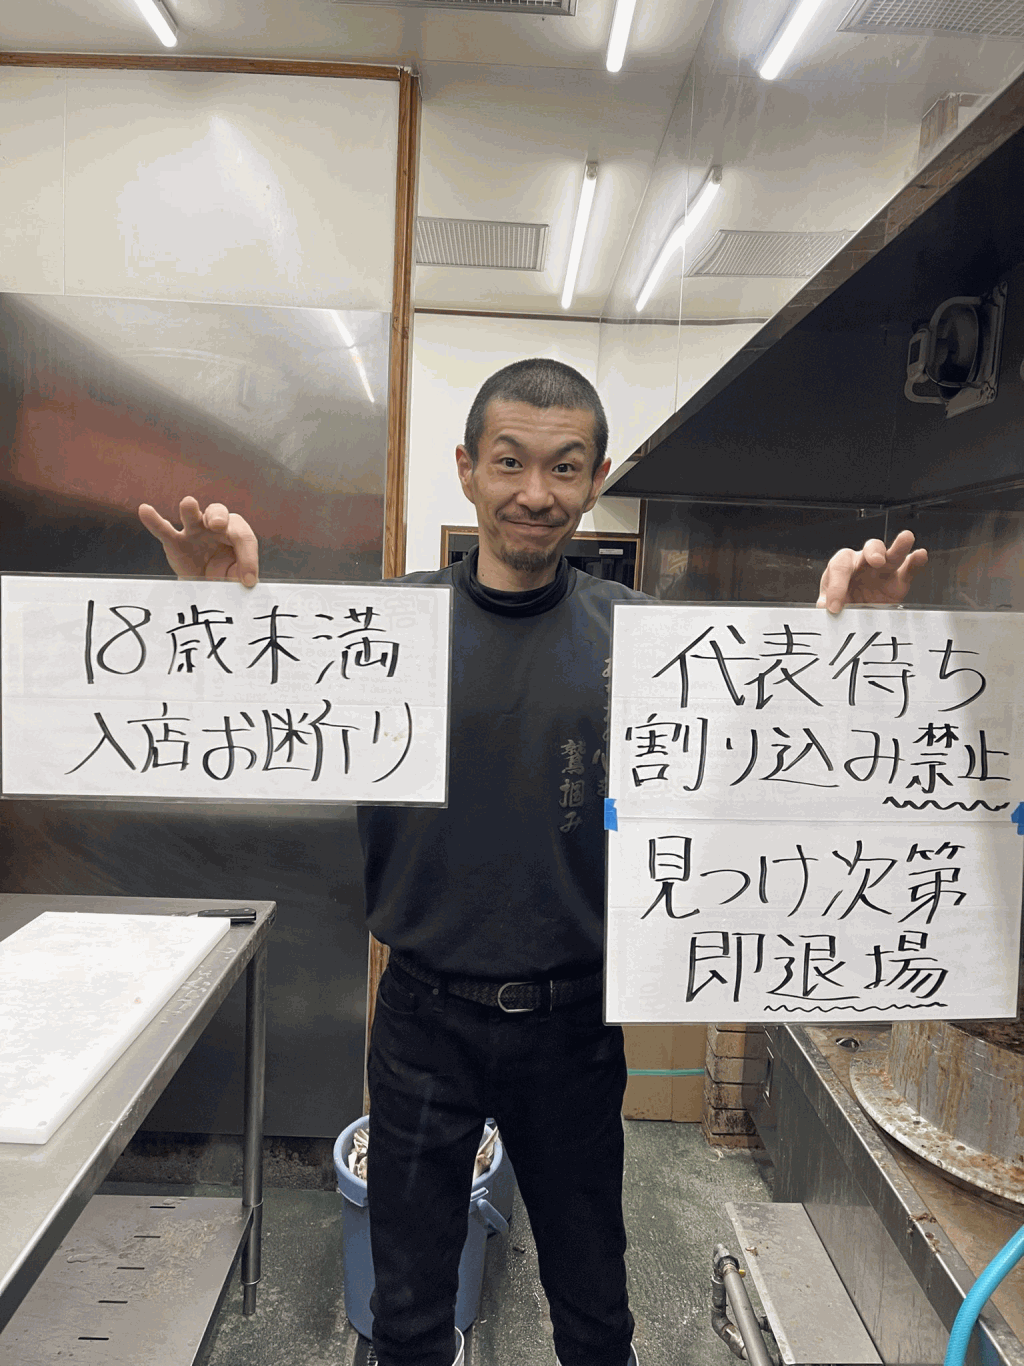 18歳未満
入店お断り
代表待ち
割り込み禁止
見つけ次第
即退場
鷲掴み